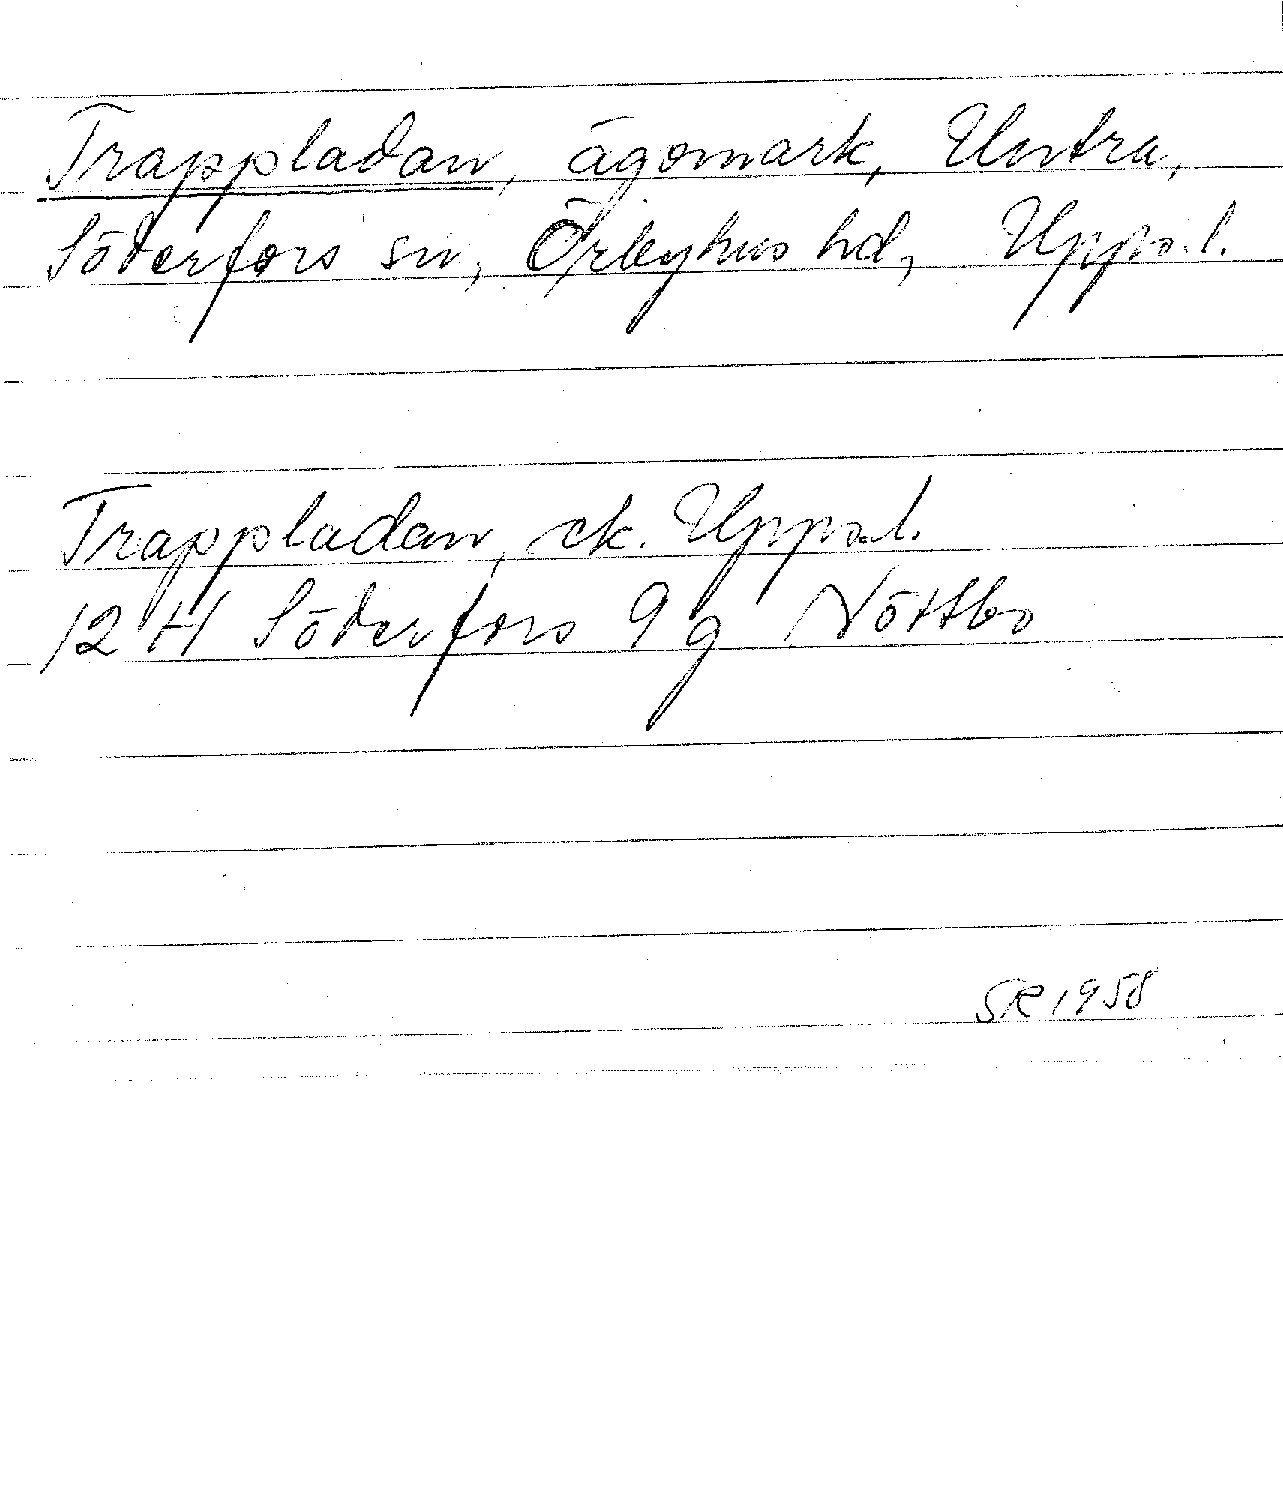 Trappladan, ägomark, Untra,
Söderfors sn, Örbyhus hd, Upps. l.
Trappladan, ek. Upps. l.
12 H Söderfors 9 g Nöttbo
SR 1958